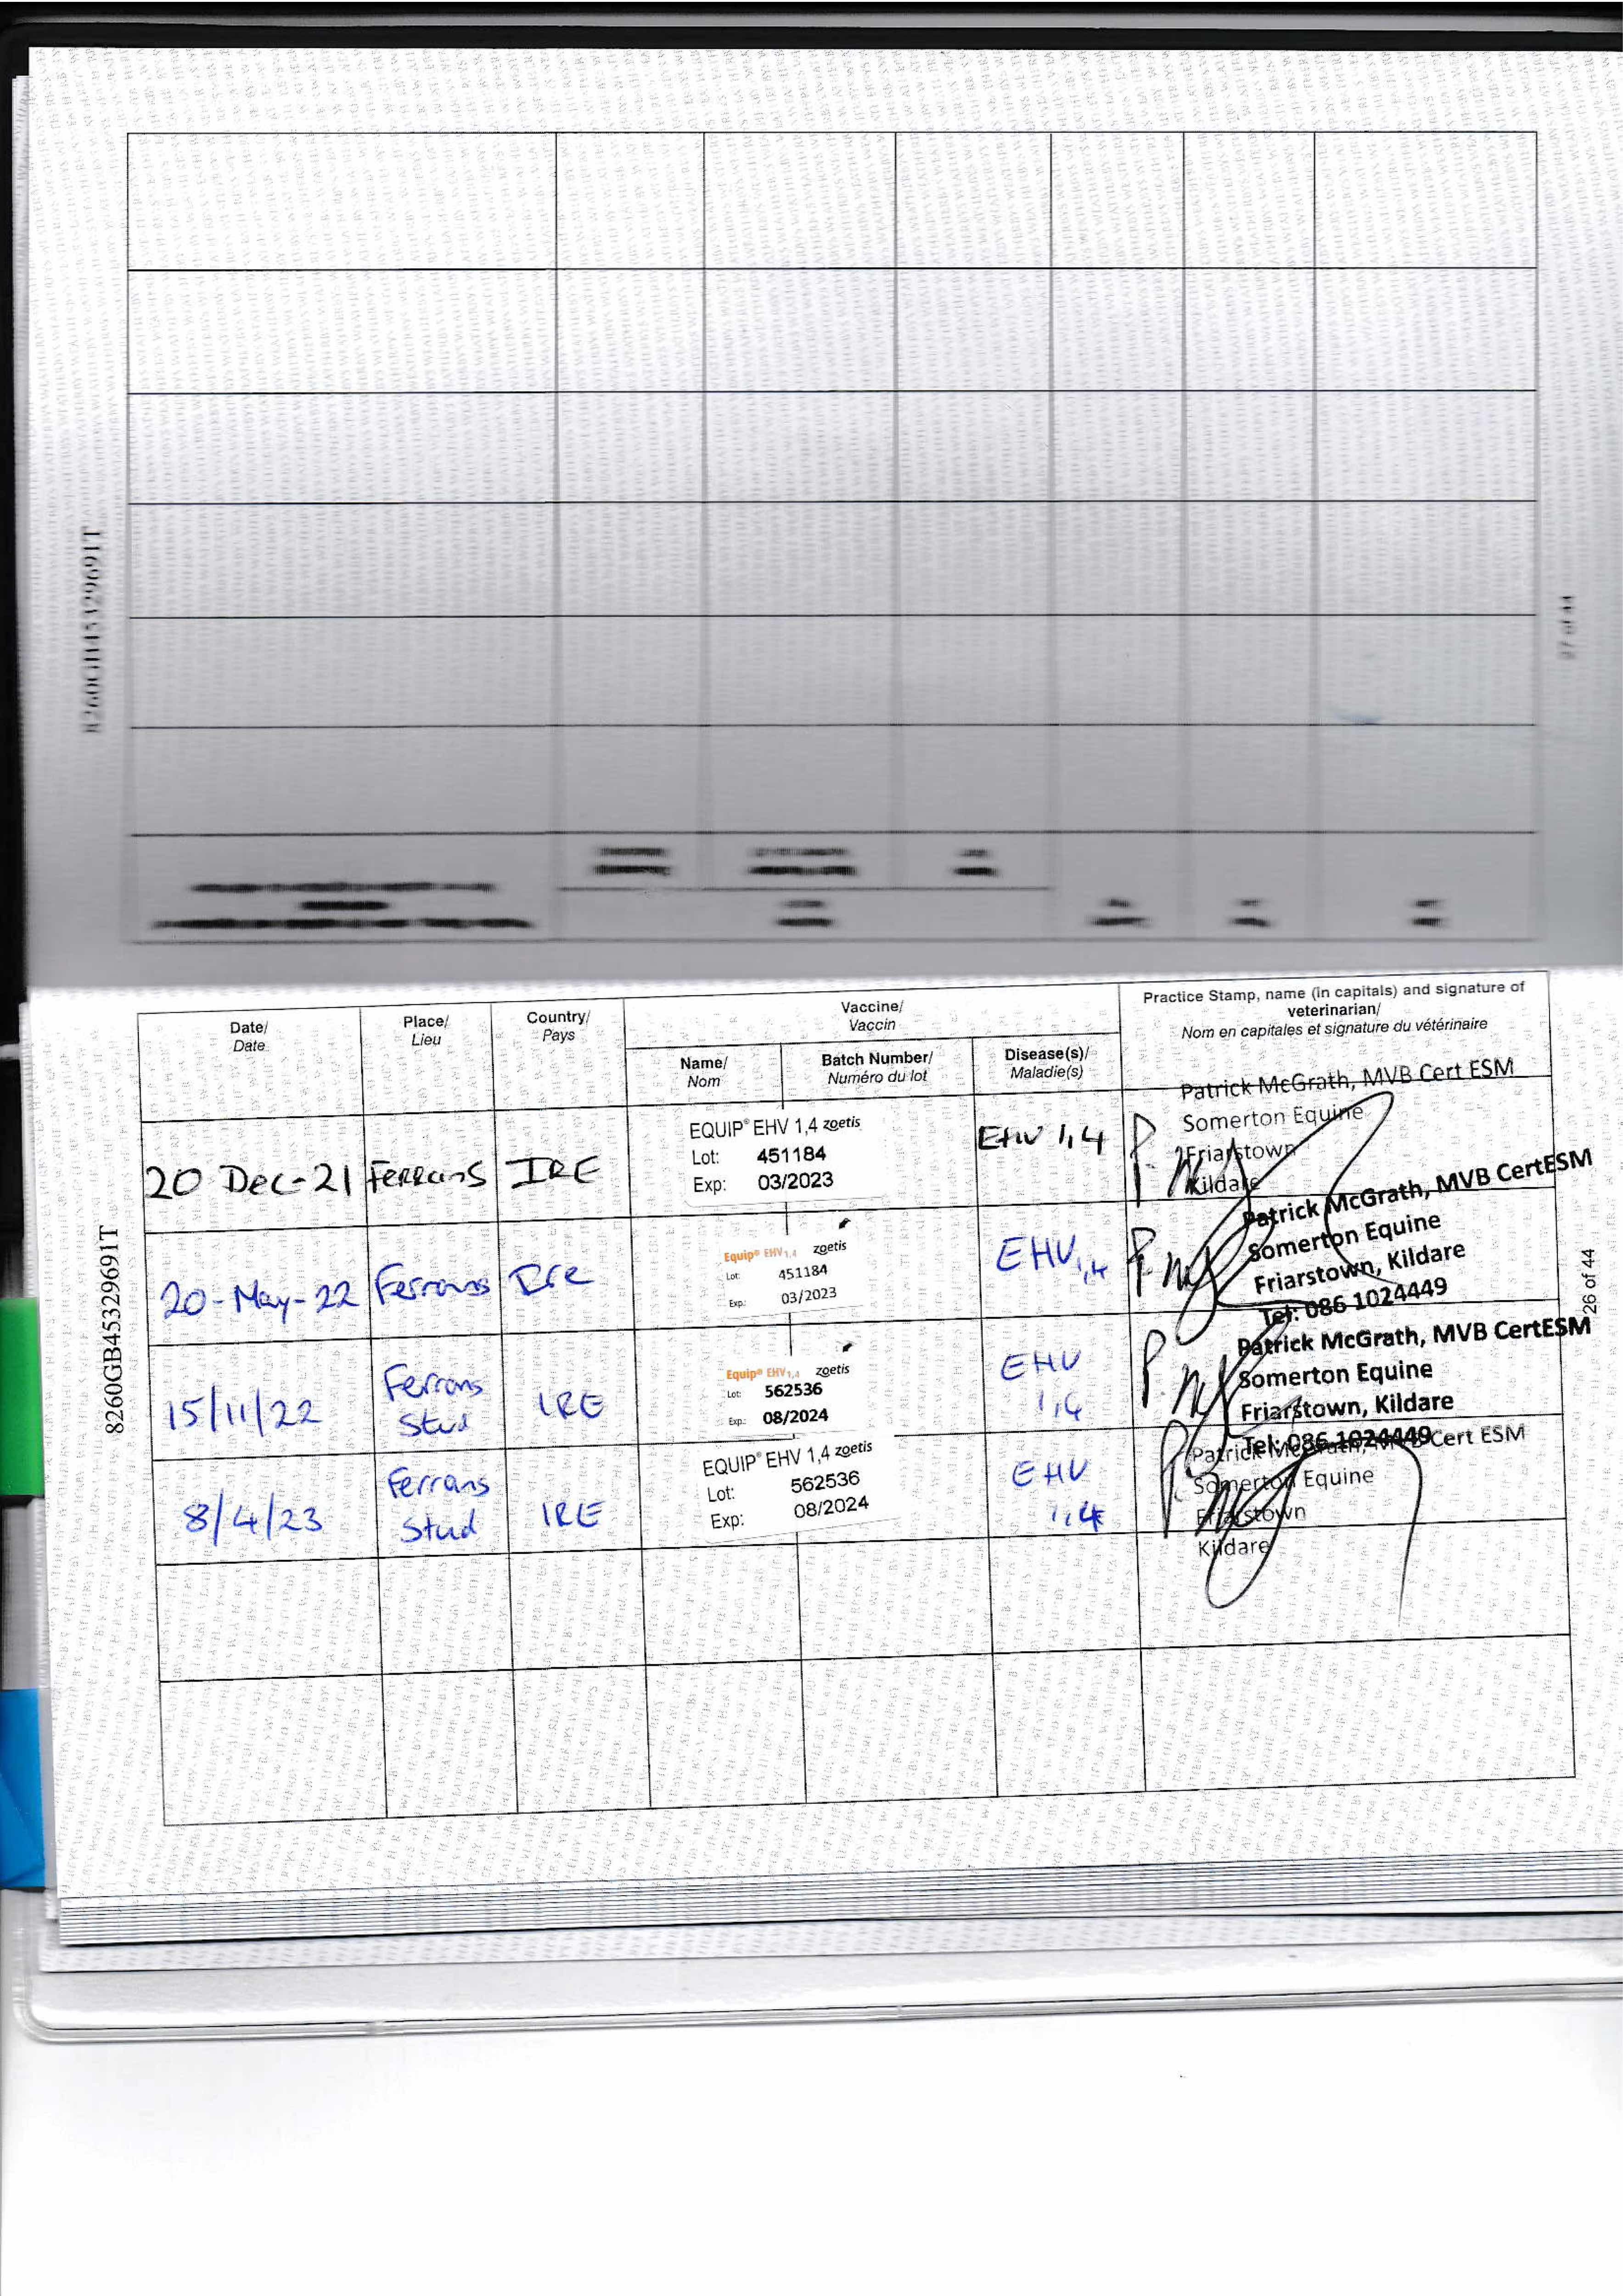 8260GB45329691T
27 of 44
Date/
Date
Place/
Lieu
Country/
Pays
Vaccine/
Vaccin
Name/
Nom
Batch Number/
Numéro du lot
Disease(s)/
Maladie(s)
Practice Stamp, name (in capitals) and signature of
veterinarian/
Nom en capitales et signature du vétérinaire
20 Dec-21
Ferrans
IRE
EQUIP® EHV 1,4 zoetis
Lot: 451184
Exp: 03/2023
EHV 1,4
Patrick McGrath, MVB Cert ESM
Somerton Equine
Friarstown
Kildare
20-May-22
Ferrans
Ire
Equip® EHV 1,4 zoetis
Lot: 451184
Exp: 03/2023
EHV 1,4
Patrick McGrath, MVB CertESM
Somerton Equine
Friarstown, Kildare
Tel: 086 1024449
15/11/22
Ferrans
Stud
IRE
Equip® EHV 1,4 zoetis
Lot: 562536
Exp: 08/2024
EHV
1,4
Patrick McGrath, MVB CertESM
Somerton Equine
Friarstown, Kildare
Tel: 086 1024449
8/4/23
Ferrans
Stud
IRE
EQUIP® EHV 1,4 zoetis
Lot: 562536
Exp: 08/2024
EHV
1,4
Patrick McGrath, MVB Cert ESM
Somerton Equine
Friarstown
Kildare
8260GB45329691T
26 of 44